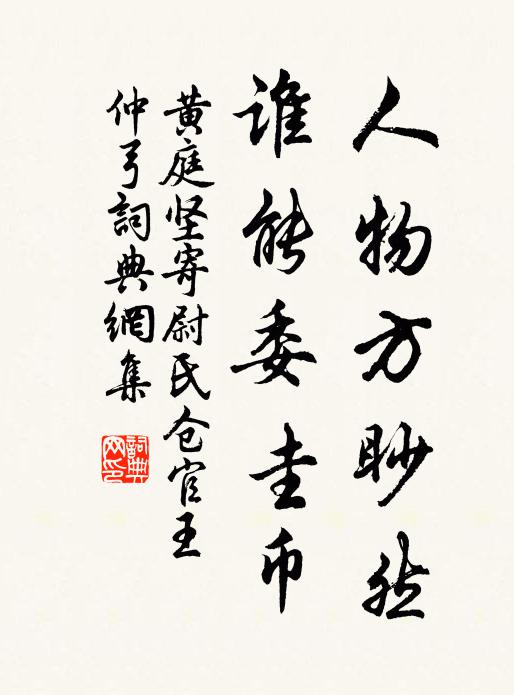 人物方眇然
谁能委圭币
黄庭坚寄尉氏仓官王
仲弓詞典網集
詞典网印